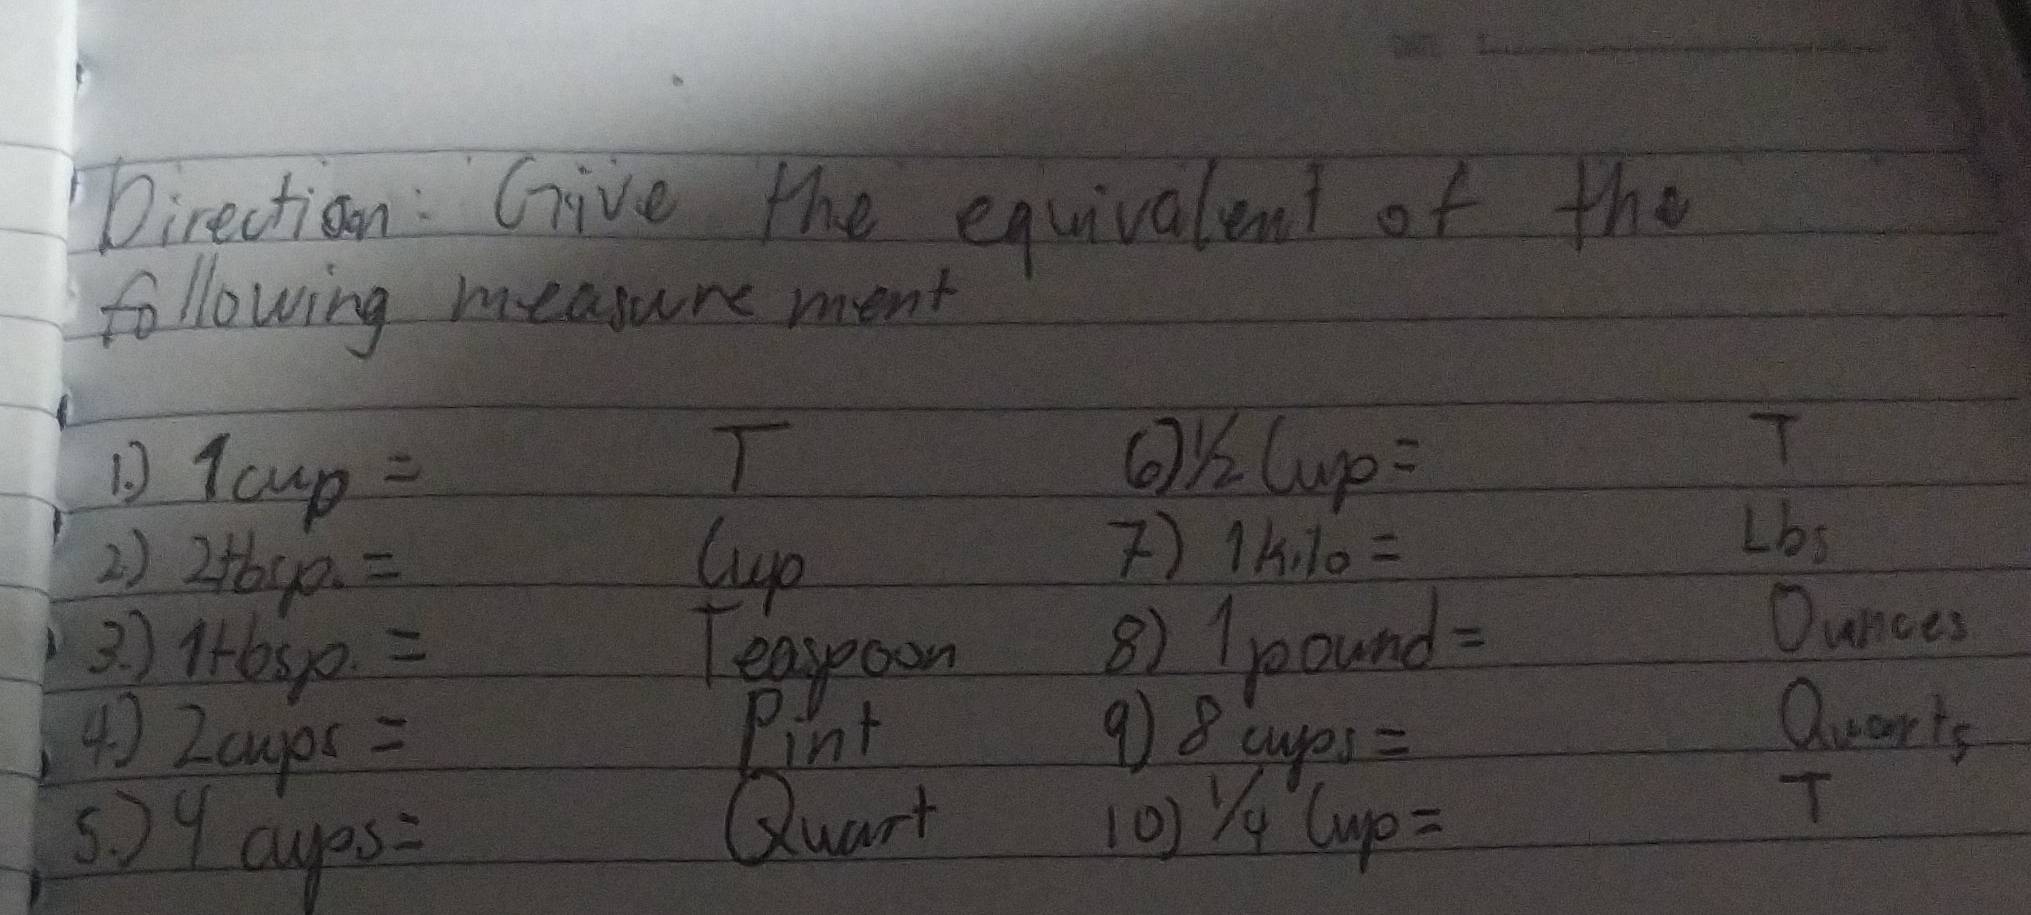 DATE
Direction: Give the equivalent of the
following measurement
1.) 1cup = T 6) 1/2 Cup = T
2.) 2tbsp. = Cup 7) 1 kilo = Lbs
3.) 1tbsp. = Teaspoon 8) 1 pound = Ounces
4.) 2cups = Pint 9) 8 cups = Quarts
5.) 4 cups = Quart 10) 1/4 Cup = T